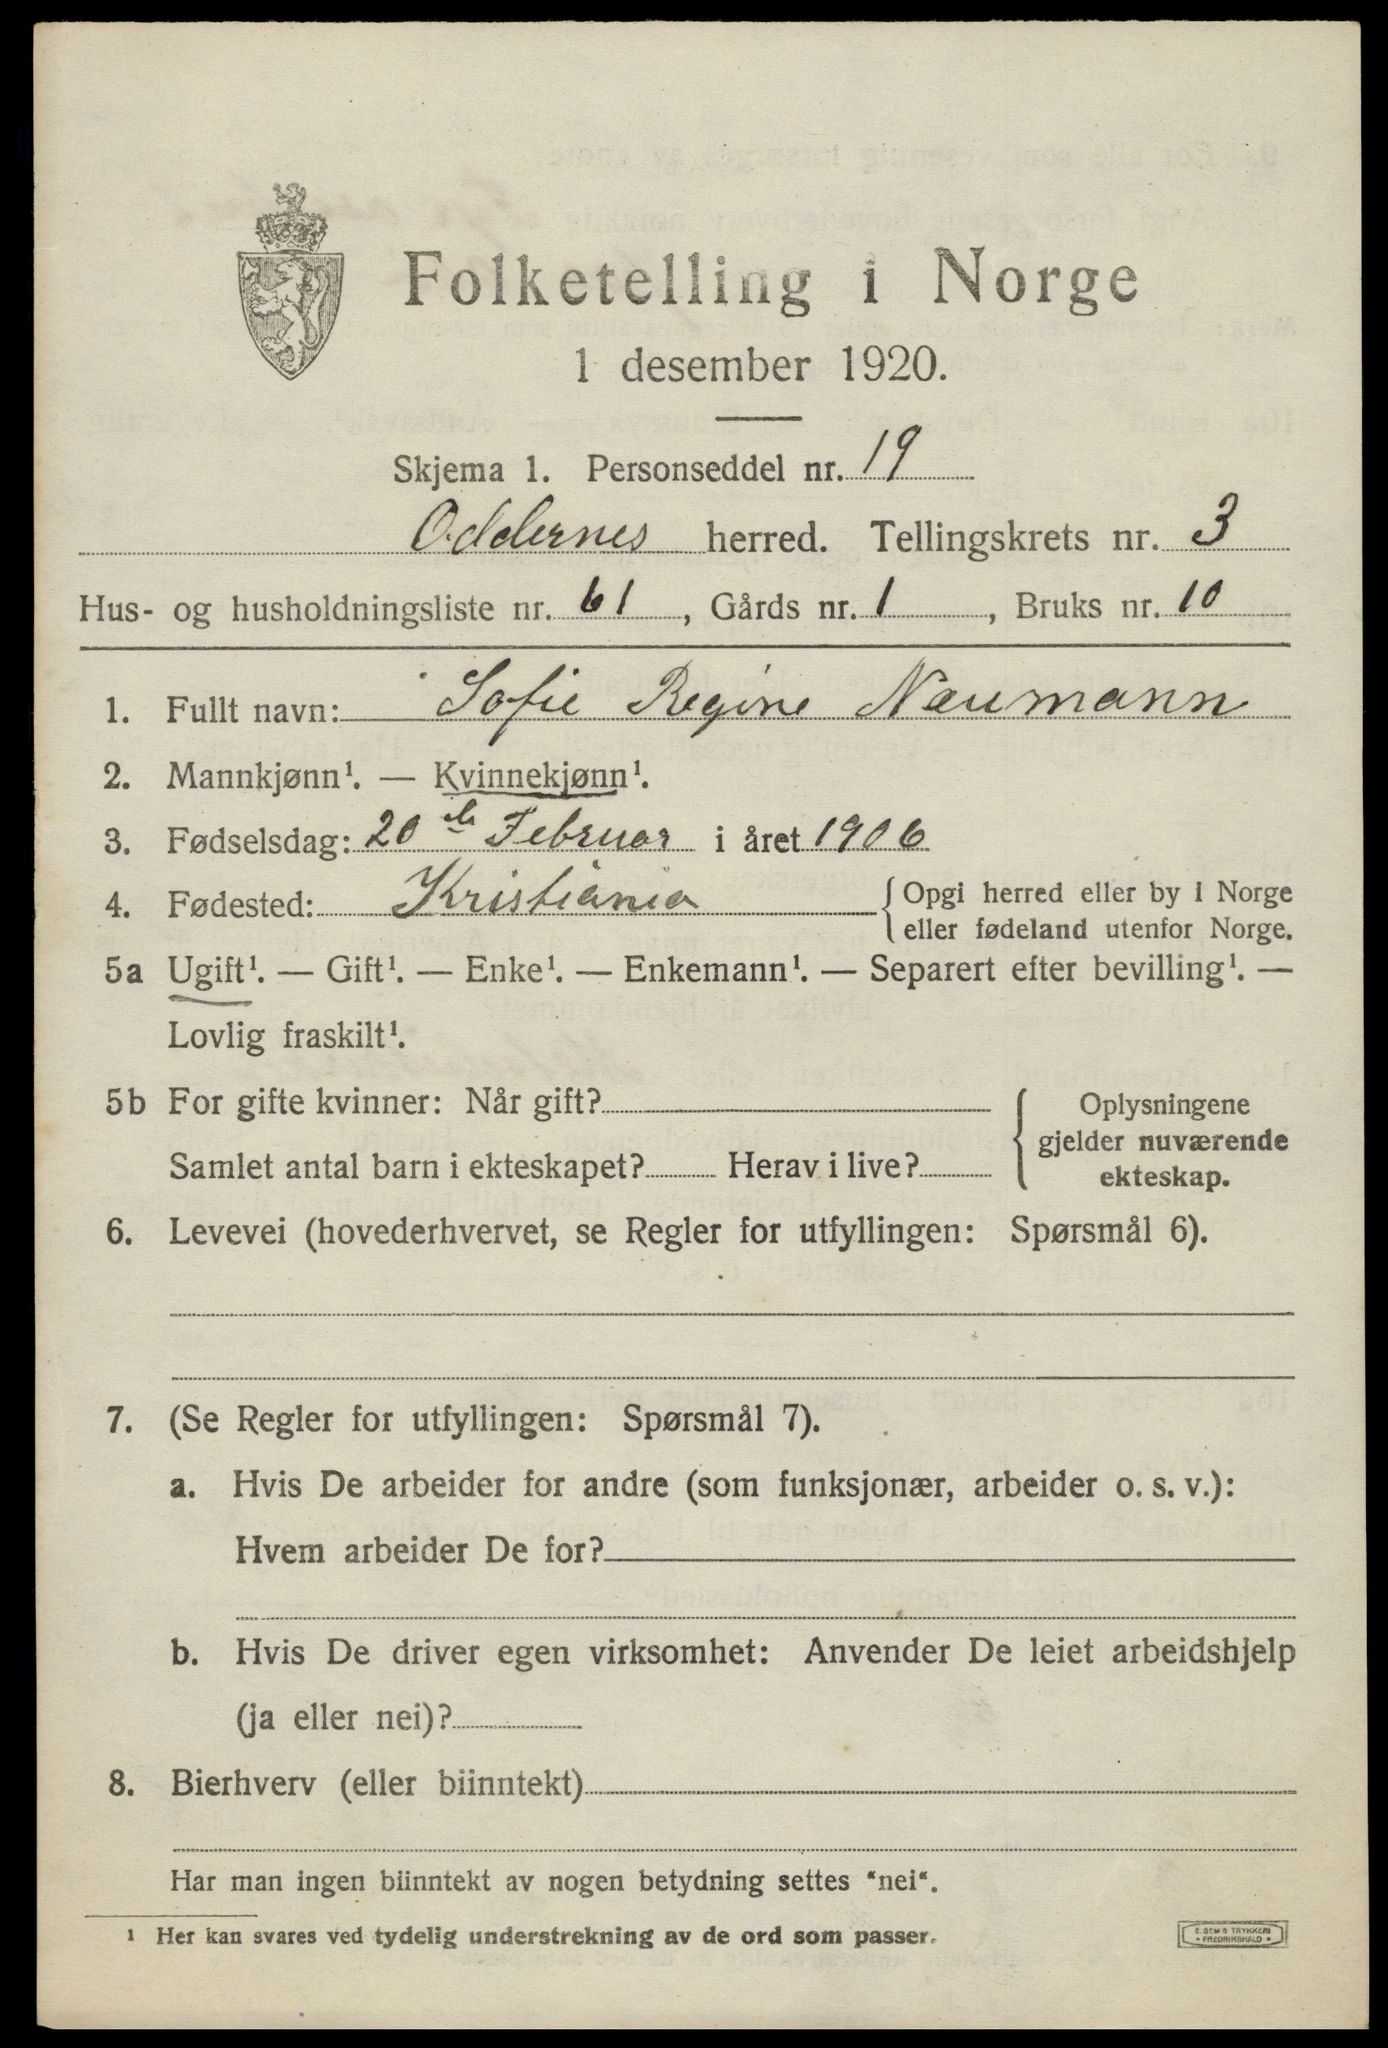 Folketelling i Norge
1 desember 1920.
Skjema 1. Personseddel nr. 19
Oddernes herred. Tellingskrets nr. 3
Hus- og husholdningsliste nr. 61, Gårds nr. 1, Bruks nr. 10
1. Fullt navn: Sofie Regine Naumann
2. Mannkjønn¹. — Kvinnekjønn¹.
3. Fødselsdag: 20de Februar i året 1906
4. Fødested: Kristiania { Opgi herred eller by i Norge
eller fødeland utenfor Norge.
5a Ugift¹. — Gift¹. — Enke¹. — Enkemann¹. — Separert efter bevilling¹. —
Lovlig fraskilt¹.
5b For gifte kvinner: Når gift? { Oplysningene
gjelder nuværende
Samlet antal barn i ekteskapet? Herav i live? ekteskap.
6. Levevei (hovederhvervet, se Regler for utfyllingen: Spørsmål 6).
7. (Se Regler for utfyllingen: Spørsmål 7).
a. Hvis De arbeider for andre (som funksjonær, arbeider o. s. v.):
Hvem arbeider De for?
b. Hvis De driver egen virksomhet: Anvender De leiet arbeidshjelp
(ja eller nei)?
8. Bierhverv (eller biinntekt)
Har man ingen biinntekt av nogen betydning settes "nei".
¹ Her kan svares ved tydelig understrekning av de ord som passer.
E. SEM'S TRYKKERI
• FREDRIKSHALD •